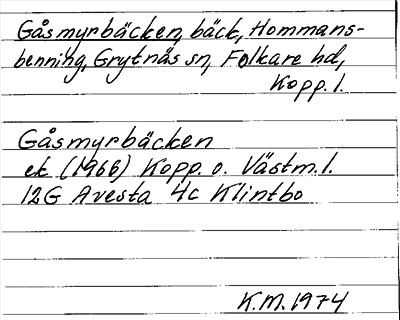 Gåsmyrbäcken, bäck, Hommans-
benning, Grytnäs sn, Folkare hd,
Kopp. l.
Gåsmyrbäcken
ek (1966) Kopp. o. Västm. l.
12G Avesta 4c Klintbo
K.M. 1974